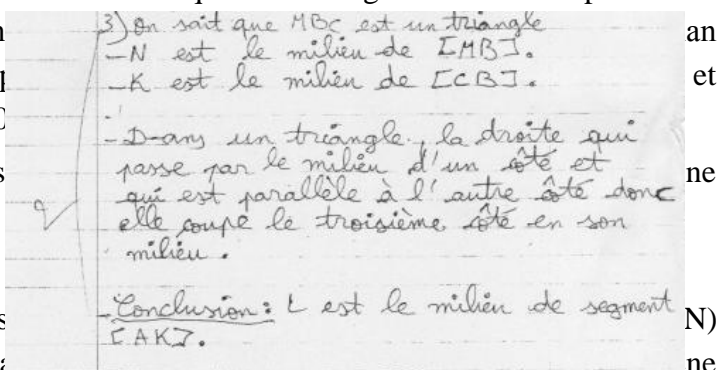 3) On sait que MBC est un triangle
an
- N est le milieu de [MB].
- K est le milieu de [CB].
et
- Dans un triangle, la droite qui
passe par le milieu d'un côté et
ne
qui est parallèle à l'autre côté donc
elle coupe le troisième côté en son
milieu.
- Conclusion : L est le milieu de segment
N)
[AK].
ne